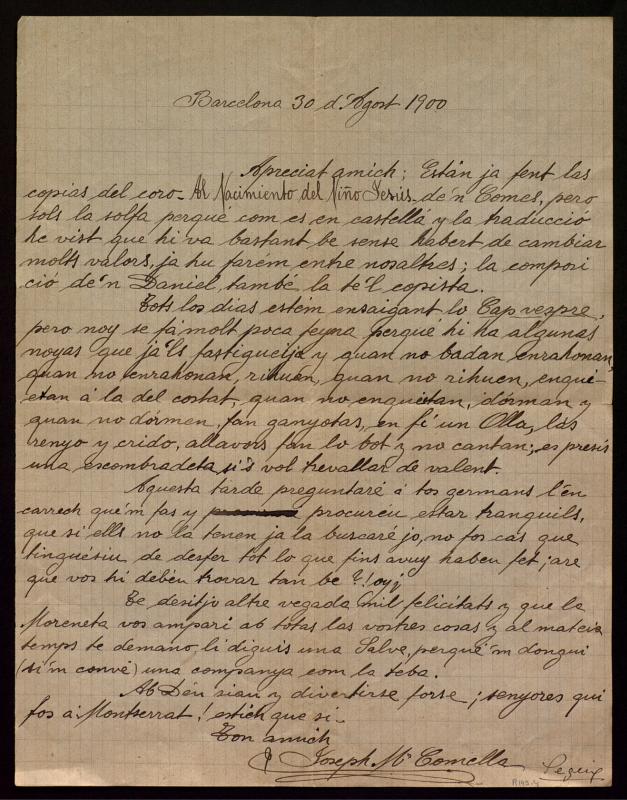 Barcelona 30 d'Agost 1900
Apreciat amich; Están ja fent las
copias del coro - Al Nacimiento del Niño Jesús - de'n Comes, pero
sols la solfa perqué com es en castellá y la traducció
he vist que hi va bastant be sense habert de cambiar
molts valors, ja hu farém entre nosaltres; la composi
ció de'n Daniel, també la té'l copista.
Tots los dias estém ensaigant lo Cap vespre,
pero noy se fá molt poca feyna perqué hi ha algunas
noyas que já'ls fastigueija y quan no badan enrahonan,
quan no enrahonan, rihuen, quan no rihuen, enqui-
etan á la del costat, quan no enquietan, dórman y
quan no dórmen, fan ganyotas, en fí un Olla, las
renyo y crido, allavors fan lo bot y no cantan; es presís
una escombradeta si's vol trevallar de valent.
Aquesta tarde preguntaré á tos germans l'en
carrech que'm fas y procureu estar tranquils,
que si ells no lá tenen ja la buscaré jo, no fos cas que
tinguésiu de desfer tot lo que fins avuy habeu fet; are
que vos hi debéu trovar tan be?! oy;
Te desitjo altre vegada mil felicitats y que la
Moreneta vos ampari ab totas las vostres cosas y al mateix
temps te demano, li diguis una Salve, perqué'm dongui
(si'm convé) una companya com la teba.
Ab Déu siau y divertirse forse; senyores qui
fos á Montserrat! estich que si -
Ton amich
Joseph Mª Comella
Segueix